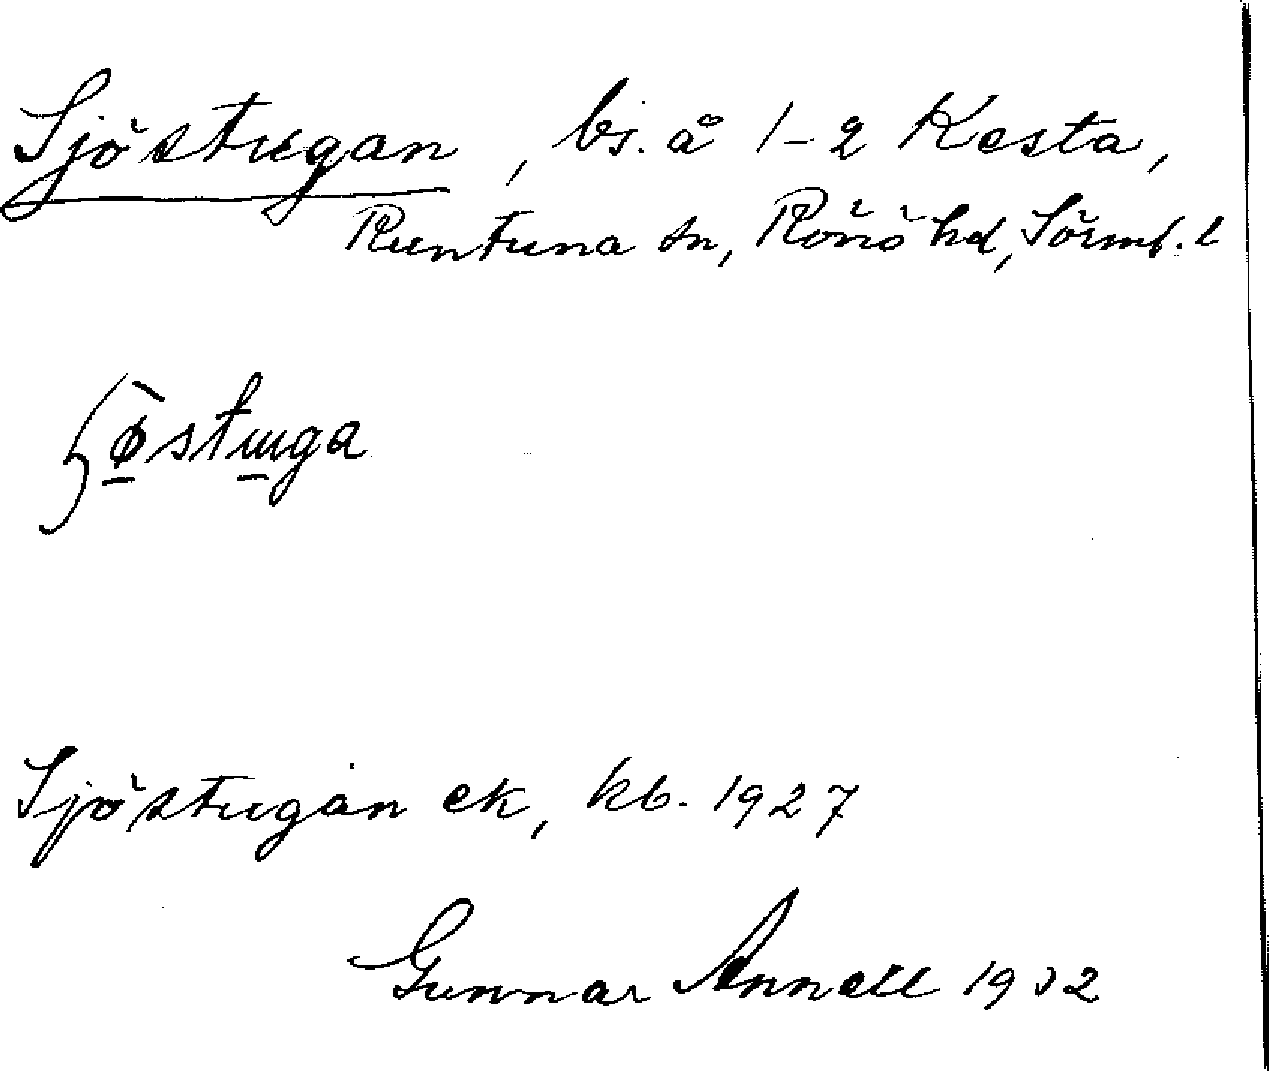 Sjöstugan, bs. å 1-2 Kesta,
Runtuna sn, Rönö hd, Sörml. l
Sjöstugan ek, kb. 1927
Gunnar Annell 1932